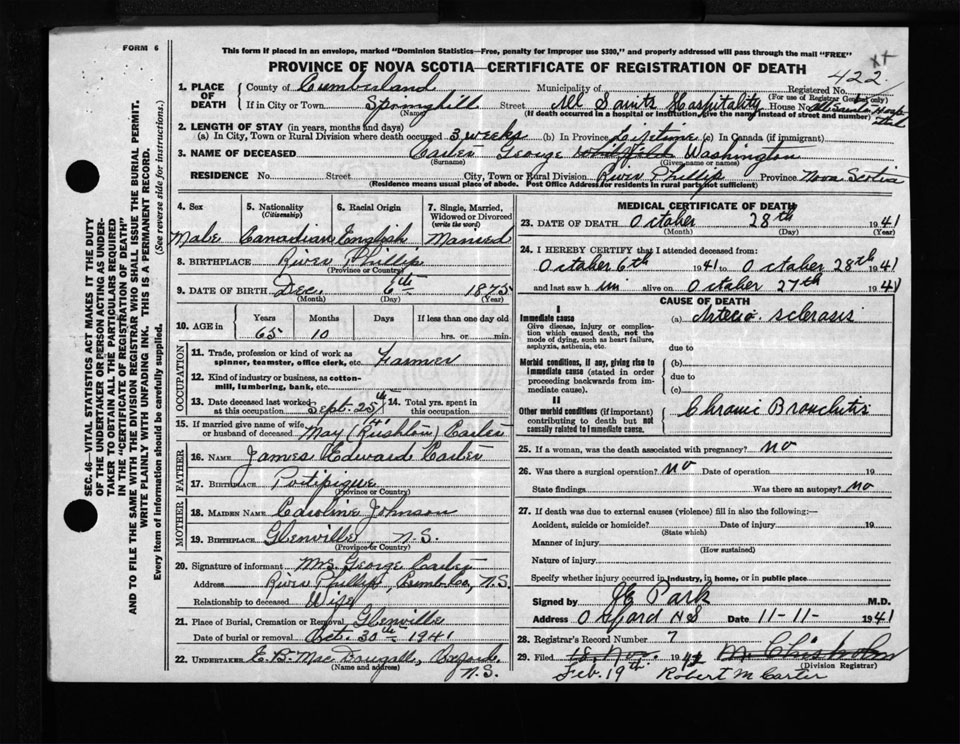 FORM 6
This form if placed in an envelope, marked "Dominion Statistics—Free, penalty for improper use $300," and properly addressed will pass through the mail "FREE"
PROVINCE OF NOVA SCOTIA—CERTIFICATE OF REGISTRATION OF DEATH
422
1. PLACE OF DEATH
County of Cumberland Municipality of Registered No.
(For use of Registrar General only)
If in City or Town Springhill Street All Saints Hospitality House No. All Saints Hospital
(Name) (If death occurred in a hospital or institution, give the name instead of street and number)
2. LENGTH OF STAY (in years, months and days)
(a) In City, Town or Rural Division where death occurred 3 weeks (b) In Province Lifetime (c) In Canada (if immigrant)
3. NAME OF DECEASED Carter George Whitfield Washington
(Surname) (Given name or names)
RESIDENCE No. Street City, Town or Rural Division River Phillip Province Nova Scotia
(Residence means usual place of abode. Post Office Address for residents in rural parts not sufficient)
4. Sex 5. Nationality (Citizenship) 6. Racial Origin 7. Single, Married, Widowed or Divorced (write the word)
Male Canadian English Married
8. BIRTHPLACE River Phillip
(Province or Country)
9. DATE OF BIRTH Dec. 6th 1875
(Month) (Day) (Year)
10. AGE in Years Months Days If less than one day old
65 10 hrs. or min.
OCCUPATION
11. Trade, profession or kind of work as spinner, teamster, office clerk, etc. Farmer
12. Kind of industry or business, as cotton-mill, lumbering, bank, etc.
13. Date deceased last worked at this occupation Sept. 25th 14. Total yrs. spent in this occupation
15. If married give name of wife or husband of deceased May (Rushton) Carter
FATHER
16. NAME James Edward Carter
17. BIRTHPLACE Portipique
(Province or Country)
MOTHER
18. MAIDEN NAME Caroline Johnson
19. BIRTHPLACE Glenville, N.S.
(Province or Country)
20. Signature of informant Mrs George Carter
Address River Phillip, Cumb. Co., N.S.
Relationship to deceased Wife
21. Place of Burial, Cremation or Removal Glenville
Date of burial or removal Oct. 30th 1941
22. UNDERTAKER E. B. MacDougall, Oxford N.S.
(Name and address)
MEDICAL CERTIFICATE OF DEATH
23. DATE OF DEATH October 28th 1941
(Month) (Day) (Year)
24. I HEREBY CERTIFY that I attended deceased from:
October 6th 1941 to October 28th 1941
and last saw him alive on October 27th 1941
CAUSE OF DEATH
I
Immediate cause (a) Arterio sclerosis
Give disease, injury or complication which caused death, not the mode of dying, such as heart failure, asphyxia, asthenia, etc.
due to
Morbid conditions, if any, giving rise to immediate cause (stated in order proceeding backwards from immediate cause).
(b)
due to
(c)
II
Other morbid conditions (if important) contributing to death but not causally related to immediate cause.
Chronic Bronchitis
25. If a woman, was the death associated with pregnancy? no
26. Was there a surgical operation? no Date of operation 19
State findings Was there an autopsy? no
27. If death was due to external causes (violence) fill in also the following:—
Accident, suicide or homicide? Date of injury 19
(State which)
Manner of injury
(How sustained)
Nature of injury
Specify whether injury occurred in industry, in home, or in public place
Signed by Park M.D.
Address Oxford NS Date 11-11- 1941
28. Registrar's Record Number 7
29. Filed 18 Nov. 1942 M Chisholm
(Division Registrar)
Feb. 19th Robert M Carter
SEC. 46—VITAL STATISTICS ACT MAKES IT THE DUTY
OF THE UNDERTAKER OR PERSON ACTING AS UNDERTAKER TO OBTAIN ALL THE PARTICULARS REQUIRED
IN THE "CERTIFICATE OF REGISTRATION OF DEATH"
AND TO FILE THE SAME WITH THE DIVISION REGISTRAR WHO SHALL ISSUE THE BURIAL PERMIT.
WRITE PLAINLY WITH UNFADING INK. THIS IS A PERMANENT RECORD.
Every item of information should be carefully supplied. (See reverse side for instructions.)